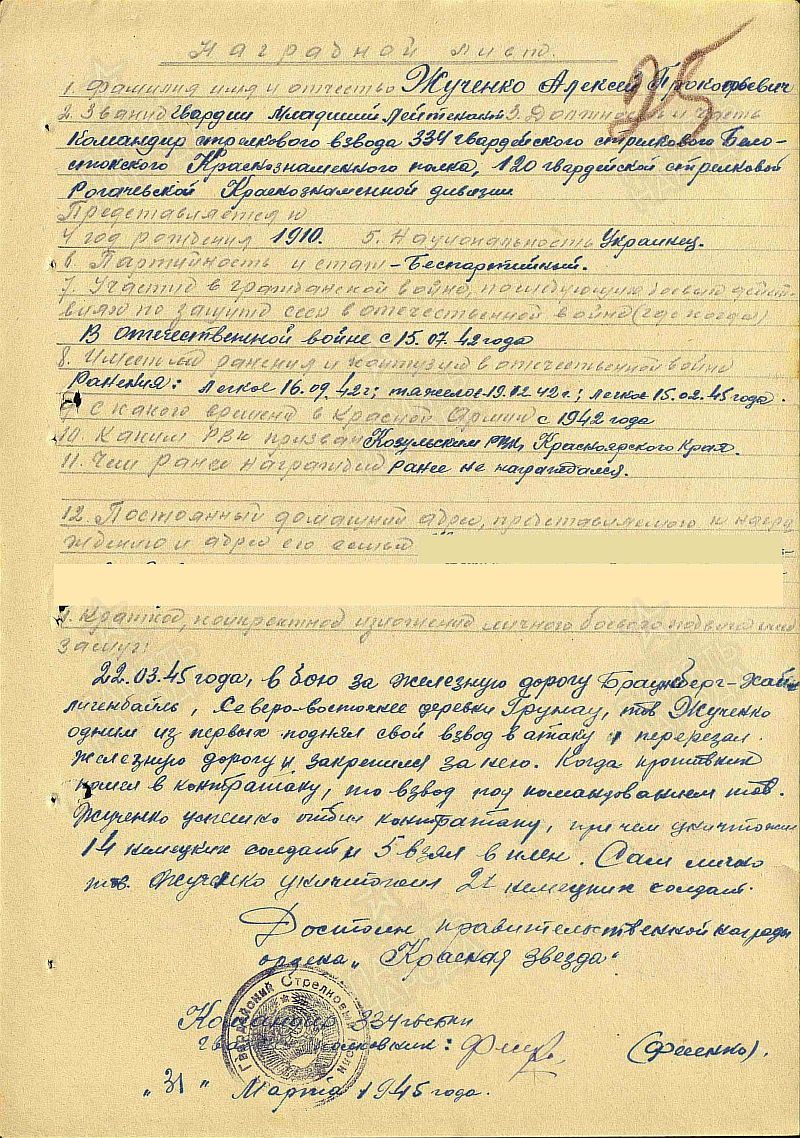 Наградной лист.
1. Фамилия имя и отчество Жученко Алексей Прокофьевич
2. Звание Гвардии Младший Лейтенант 3. Должность и часть
Командир стрелкового взвода 334 гвардейского стрелкового Бело-
стокского Краснознаменного полка, 120 гвардейской стрелковой
Рогачевской Краснознаменной дивизии
Представляется к
4 год рождения 1910. 5. Национальность Украинец.
6. Партийность и стаж - Беспартийный.
7. Участие в гражданской войне, последующих боевых дейст-
виях по защите ссср в отечественной войне (где когда)
В отечественной войне с 15.07.42 года
8. Имеет ли ранения и контузии в отечественной войне
Ранения: легкое 16.09.42 г; тяжелое 19.12.42 г.; легкое 15.02.45 года.
9. С какого времени в Красной Армии с 1942 года
10. Каким РВК призван Козульским РВК, Красноярского Края.
11. Чем Ранее Награжден Ранее не награждался.
12. Постоянный домашний адрес, представляемого к награ
ждению и адрес его семьи
Краткое, конкретное изложение личного боевого подвига или
заслуг:
22.03.45 года, в бою за железную дорогу Браунсберг-Хай
лигенбайль, Северо-восточнее деревни Грунау, тов Жученко
одним из первых поднял свой взвод в атаку и перерезал
железную дорогу и закрепился за нею. Когда противник
пошел в контратаку, то взвод под командованием тов.
Жученко успешно отбил контратаку, при чем уничтожил
14 немецких солдат и 5 взял в плен. Сам лично
тов. Жученко уничтожил 2 немецких солдат.
Достоин правительственной награды
ордена „Красная звезда"
Командир 334 гв стп
гвардии полковник: (Фесенко).
„31" Марта 1945 года.
Гвардейский Стрелковый полк
25